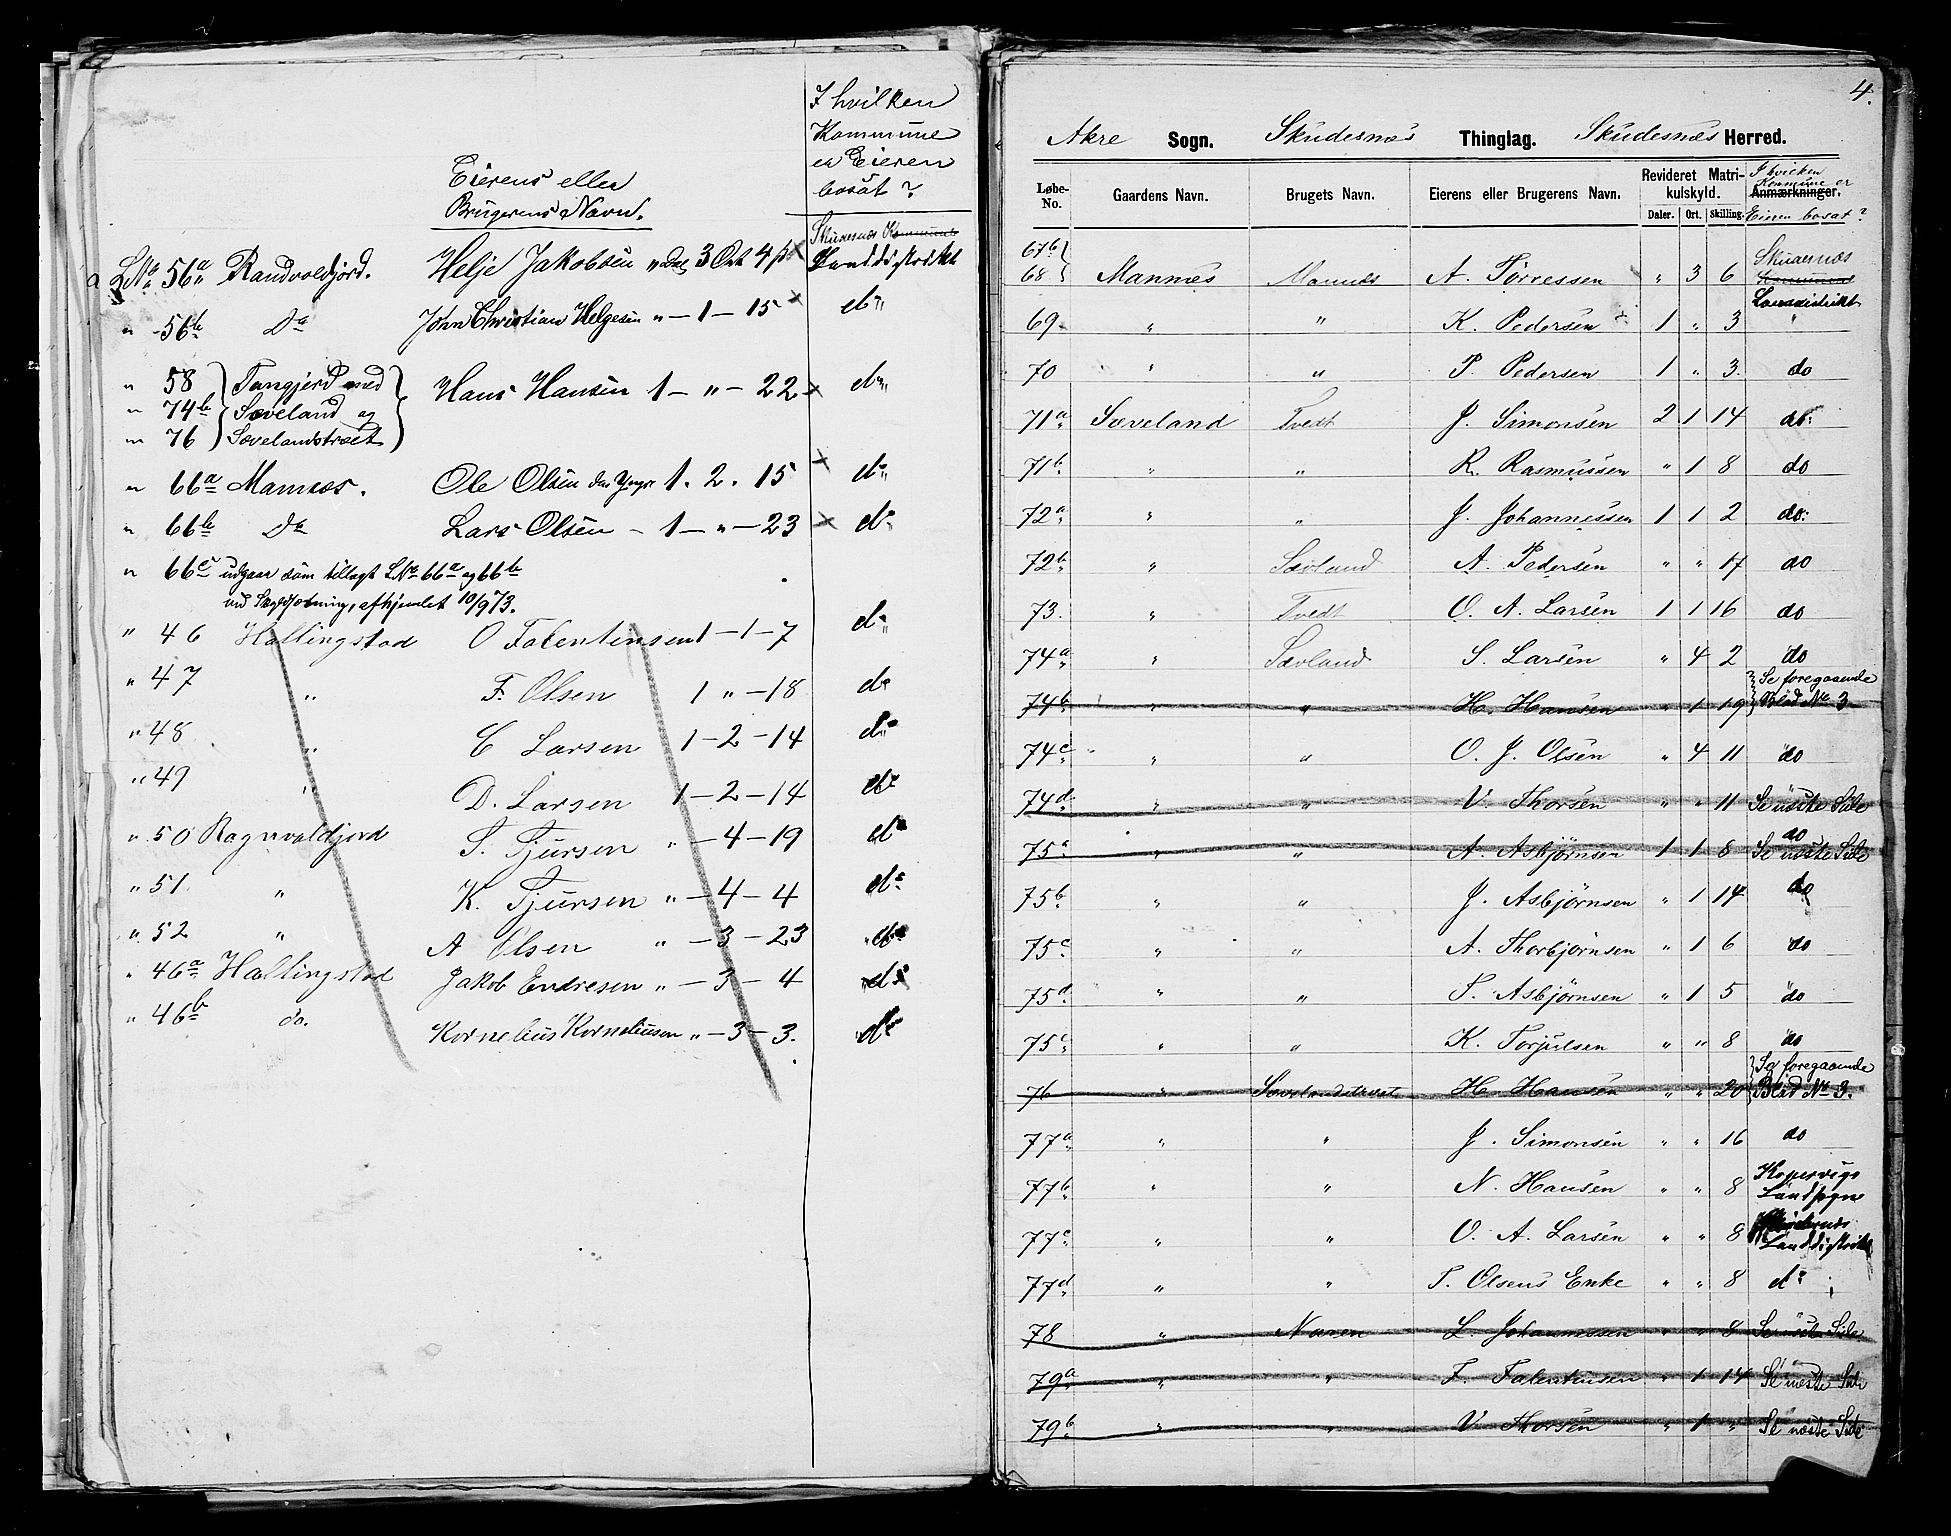 I hvilken
Kommune
er Eieren
bosat?
Eierens eller
Brugerens Navn.
Skudesnæs Kommunes
Landdistrikt
LNo 56a Randvoldjord. Helje Jakobsen " Dal 3 Ort 4 ß
" 56b Do John Christian Helgesen " – 1 – 15 do
" 58 Tangjerd med
" 74b Sæveland og Hans Hansen 1 – " – 22 do
" 76 Sævelandstræet
" 66a Mannæs. Ole Olsen den Yngre 1. 2. 15 do
" 66b Do Lars Olsen – 1 – " – 23 do
" 66c udgaar som tillagt LNo 66a og 66b
ved afhjemlet 10/9 73.
" 46 Hallingstad O Falentinsen 1 – 1 – 7 do
" 47 " F. Olsen 1 " – 18 do
" 48 " C Larsen 1 – 2 – 14 do
" 49 " D. Larsen 1 – 2 – 14 do
" 50 Ragnvaldjord S. Tjursen " – 4 – 19 do
" 51 " K. Tjursen " – 4 – 4 do
" 52 " A Olsen " – 3 – 23 do
" 46a Hallingstad Jakob Endresen " – 3 – 4 do
" 46b do. Kornelius Korneliusen " – 3 – 3. do
4.
Akre Sogn. Skudesnæs Thinglag. Skudesnæs Herred.
Løbe-No. Gaardens Navn. Brugets Navn. Eierens eller Brugerens Navn. Revideret Matrikulskyld. Anmærkninger.
I hvilken Kommune er Eieren bosat?
Daler. Ort. Skilling.
67b
68 Mannæs Mannæs A. Torressen " 3 6 Skudesnæs Kommunes Landdistrikt
69 " " K. Pedersen 1 " 3 "
70 " " P. Pedersen 1 " 3. do
71a Sæveland Tvedt J. Simonsen 2 1 14 do.
71b " " R. Rasmussen " 1 8 do
72a " " J. Johannessen 1 1 2 do:
72b " Sævland A. Pedersen " " 17 do
73. " Tvedt O. A. Larsen 1 1 16 do
74a " Sævland S. Larsen " 4 2 do
74b " " H. Hansen " 1 19 Se foregaaende Blad No 3
74c " " O. J. Olsen " 4 11 do
74d " " V. Thorsen " " 11 Se næste Side
75a " " A. Asbjørnsen 1 1 8 do Se næste Side
75b " " J. Asbjørnsen " 1 14 do
75c " " A. Thorbjørnsen " 1 6 do
75d " " S. Asbjørnsen " 1 5 do
75e " " K. Torjulsen " " 8 do
76 " Sævelandstræet H. Hansen " " 20 Se foregaaende Blad No 3.
77a " " J. Simonsen " " 16 do
77b " " N. Hansen " " 8 Kopervigs Landsogn
77c " " O. A. Larsen " " 8 Skudesnæs Landdistrikt
77d " " T. Olsens Enke " " 8 do
78 " L. Johannessen " " 8 Se næste Side
79a " " F. Falentinsen " 1 14 Se næste Side
79b " " V Thorsen " 1 " Se næste Side